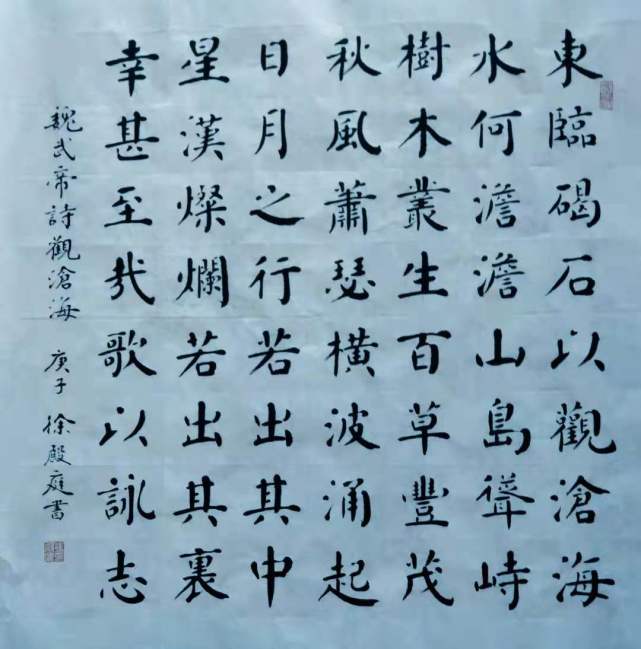 東臨碣石以觀滄海
水何澹澹山島聳峙
樹木叢生百草豐茂
秋風蕭瑟橫波涌起
日月之行若出其中
星漢燦爛若出其裏
幸甚至哉歌以詠志
魏武帝詩觀滄海 庚子 徐殿庭書